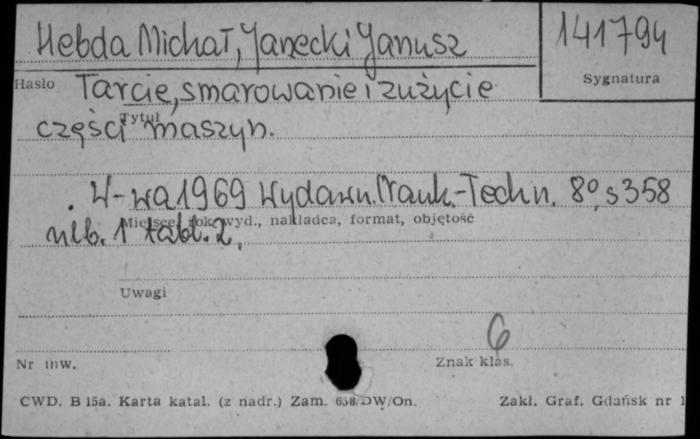 Hebda Michał, Janecki Janusz
141794
Hasło
Sygnatura
Tarcie, smarowanie i zużycie
Tytuł
części maszyn.
W-wa 1969 Wydawn. Nauk.-Techn. 8°, s 358
Miejsce, rok wyd., nakładca, format, objętość
nlb. 1 tabl. 2.
Uwagi
6
Nr inw.
Znak klas.
CWD. B 15a. Karta katal. (z nadr.) Zam. 658/DW/On.
Zakł. Graf. Gdańsk nr 1